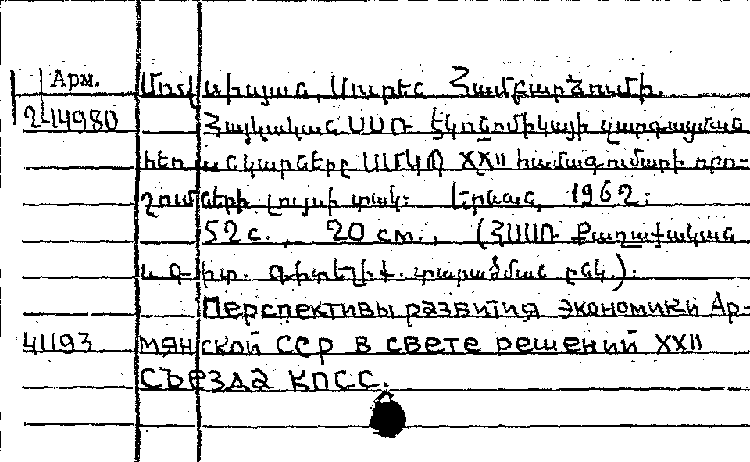 Арм.
Մովսիսյան, Սուրեն Համբարձումի.
2-14980
Հայկական ՍՍՌ էկոնոմիկայի զարգացման
հեռանկարները ՍՄԿՊ XXII համագումարի որո-
շումների լույսի տակ: Երևան, 1962:
52 с., 20 см., (ՀՍՍՌ Քաղաքական
և գիտ. գիտելիք. տարածման ընկ.):
Перспективы развития экономики Ар-
41193 мянской ССР в свете решений XXII
съезда КПСС.